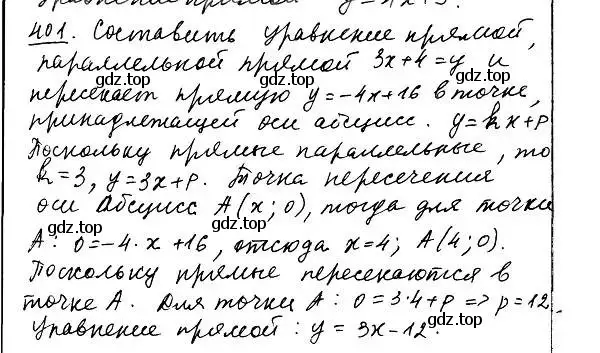 Уравнение прямой y=4x+3.
401. Составить уравнение прямой,
gdz.top gdz.top
параллельной прямой 3x+4=y и
пересекает прямую y=-4x+16 в точке,
принадлежащей оси абсцисс. y=kx+p
gdz.top
Поскольку прямые параллельные, то
k=3, y=3x+p. Точка пересечения
gdz.top
оси абсцисс A(x;0), тогда для точки
gdz.top
A: 0=-4·x+16, отсюда x=4; A(4;0).
gdz.top
Поскольку прямые пересекаются в
точке A. Для точки A: 0=3·4+p => p=12.
gdz.top
Уравнение прямой: y=3x-12.
gdz.top